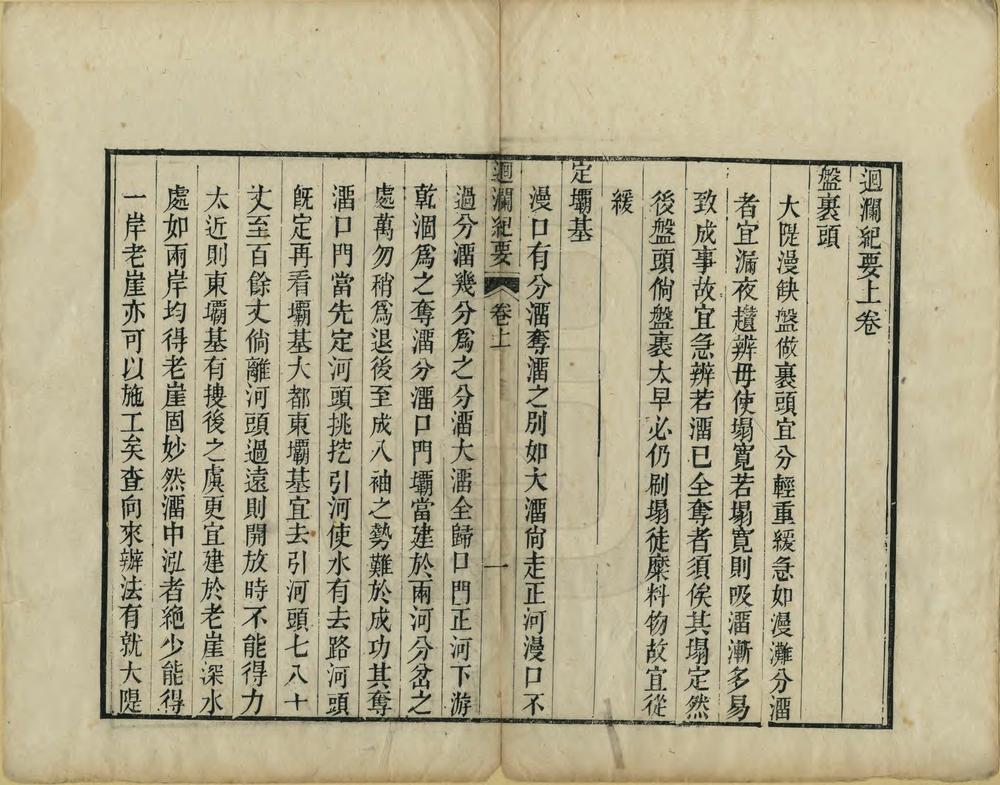 迴瀾紀要上卷
盤裹頭
大隄漫缺盤做裹頭宜分輕重緩急如漫灘分溜
者宜漏夜趲辦毋使塌寬若塌寬則吸溜漸多易
致成事故宜急辦若溜已全奪者須俟其塌定然
後盤頭倘盤裹太早必仍刷塌徒糜料物故宜從
緩
定壩基
漫口有分溜奪溜之別如大溜尚走正河漫口不
迴瀾紀要
卷上
一
過分溜幾分爲之分溜大溜全歸口門正河下游
乾涸爲之奪溜分溜口門壩當建於兩河分岔之
處萬勿稍爲退後至成入袖之勢難於成功其奪
溜口門當先定河頭挑挖引河使水有去路河頭
旣定再看壩基大都東壩基宜去引河頭七八十
丈至百餘丈倘離河頭過遠則開放時不能得力
太近則東壩基有摟後之虞更宜建於老崖深水
處如兩岸均得老崖固妙然溜中泓者絶少能得
一岸老崖亦可以施工矣查向來辦法有就大隄